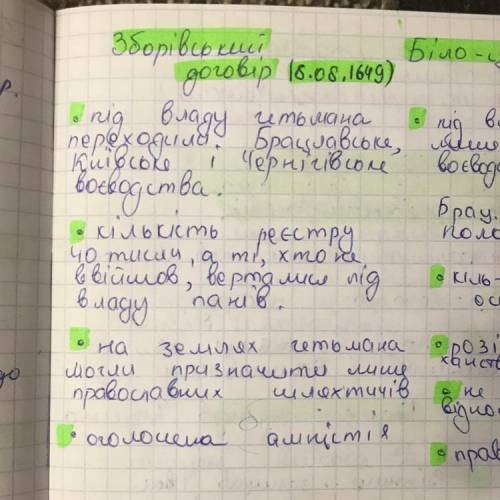 Зборівський
договір (8.08.1649)
• під владу гетьмана
переходила Брацлавське,
Київське і Чернігівське
воєводства.
• кількість реєстру
40 тисяч, а ті, хто не
ввійшов, вертался під
владу панів.
• на землях гетьмана
могли призначити лише
православних шляхтичів
• оголошена амністія
Біло-ц
• під в
лише
воєводс
Брац.
поло
• кіль-
ос
• розі
ханств
• не
віднос
• прав
р.
до